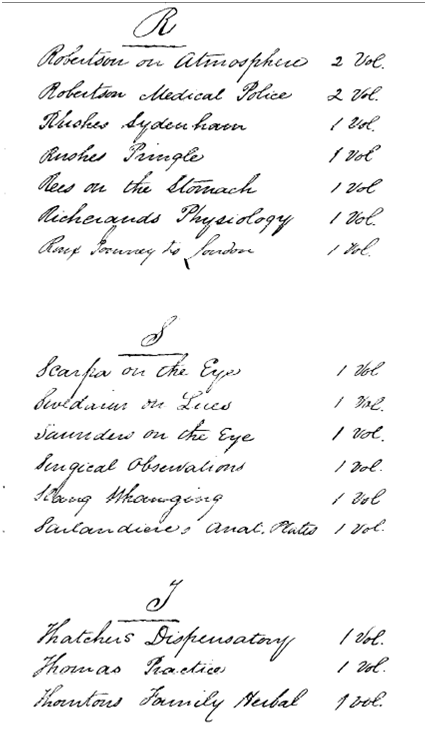 R
Robertson on Atmosphere 2 Vol.
Robertson Medical Police 2 Vol.
Rushes Sydenham 1 Vol.
Rushes Pringle 1 Vol
Rees on the Stomach 1 Vol
Richerands Physiology 1 Vol.
Roux Journey to London 1 Vol.
S
Scarpa on the Eye 1 Vol
Swediaur on Lues 1 Vol.
Saunders on the Eye 1 Vol.
Surgical Observations 1 Vol.
Slang Whanging 1 Vol
Sarlandiere's Anat. Plates 1 Vol.
T
Thatchers Dispensatory 1 Vol.
Thomas Practice 1 Vol.
Thorntons Family Herbal 1 Vol.